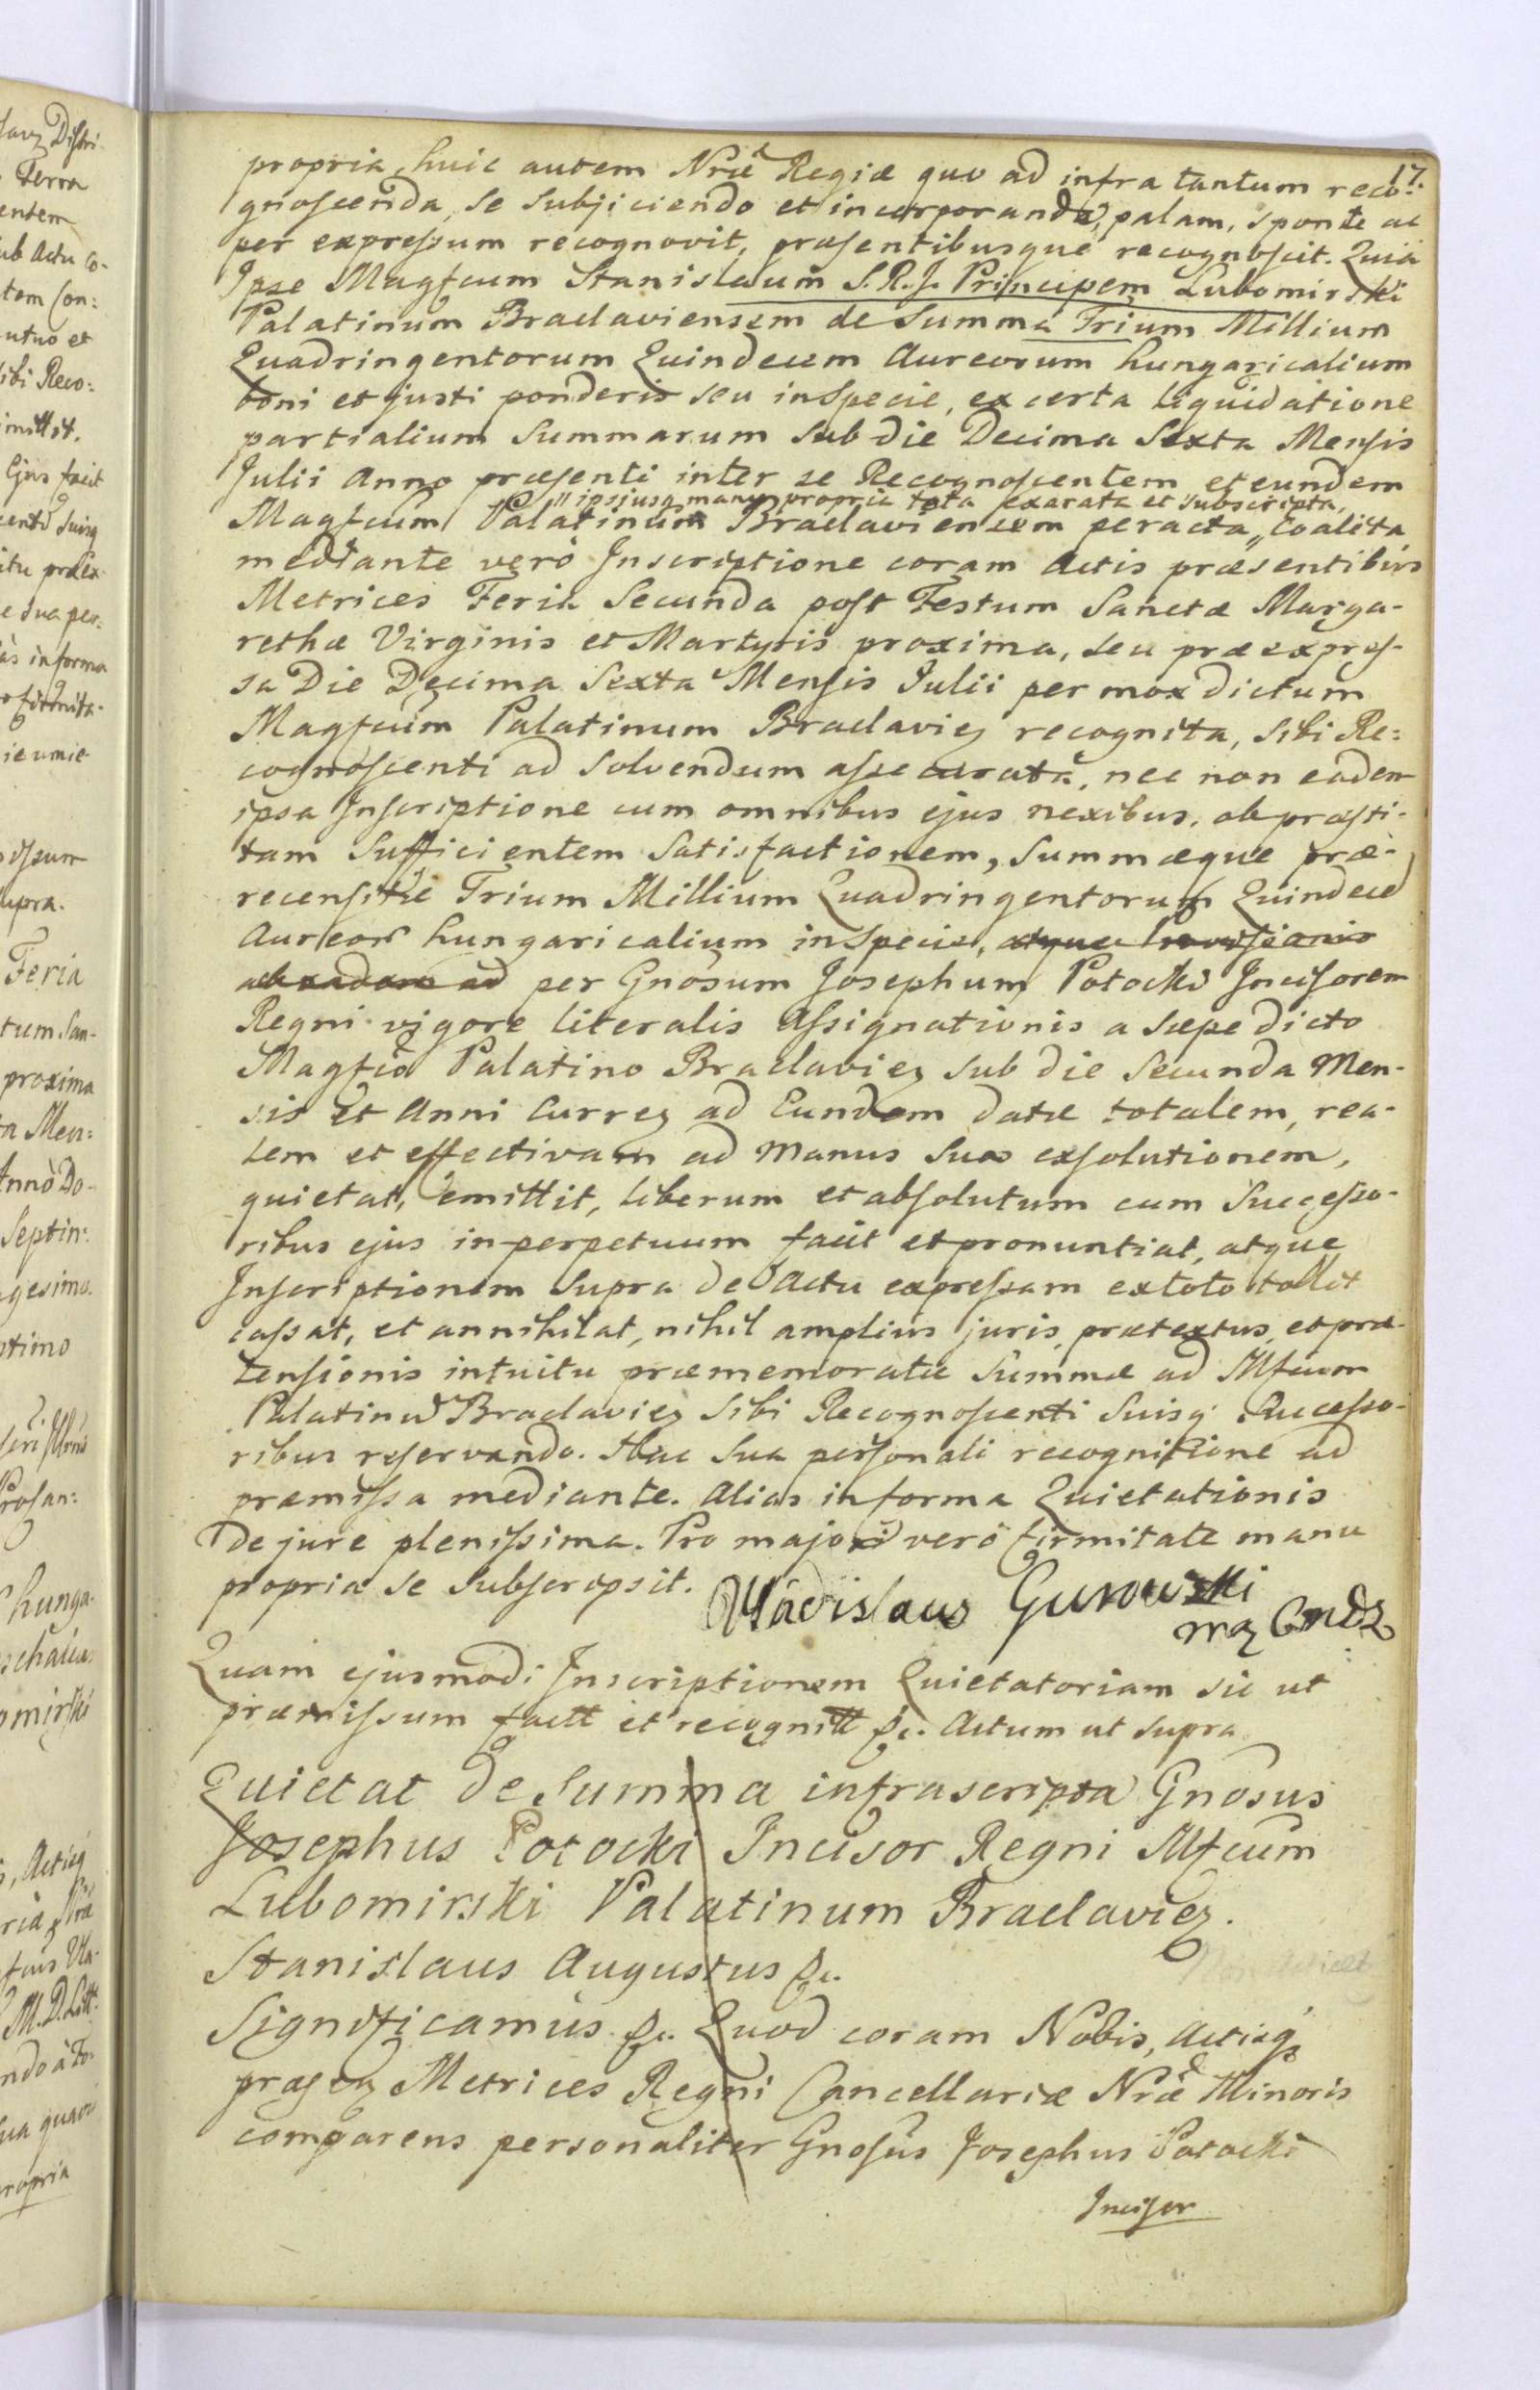 17.
propria, huic autem Nrae Regiae quo ad infra tantum reco-
gnoscenda, se subjiciendo et incorporando, palam, sponte ac
per expressum recognovit, praesentibusque recognoscit. Quia
Ipse Magfcum Stanislaum S.R.J. Principem Lubomirski
Palatinum Braclaviensem de Summa Trium Millium
Quadringentorum Quindecem Aureorum hungaricalium
boni et justi ponderis seu in specie, ex certa liquidatione
partialium Summarum sub die Decima Sexta Mensis
Julii Anno praesenti inter se Recognoscentem et eundem
" ipsiusq manu propria tota exarata et subscripta,
Magfcum Palatinum Braclaviensem peracta " Coalita
mediante verò Inscriptione coram Actis praesentibus
Metrices Feria Secunda post Festum Sanctae Marga-
rethae Virginis et Martyris proxima, seu praeexpres-
sa Die Decima Sexta Mensis Julii per mox dictum
Magfcum Palatinum Braclavien recognita, sibi Re:
cognoscenti ad solvendum assecurata, nec non eadem
ipsa Inscriptione cum omnibus ejus nexibus, ob praesti-
tam sufficientem Satisfactionem, Summaeque prae-
recensitae Trium Millium Quadringentorum Quindece
Aureor hungaricalium in Specie, atque
ab eadem ad per Gnosum Josephum Potocki Incisorem
Regni vigore literalis Assignationis a saepe dicto
Magfco Palatino Braclavien sub die Secunda Men-
sis Et Anni Curren ad Eundem datae totalem, rea-
lem et effectivam ad manus suas exsolutionem,
quietat, emittit, liberum et absolutum cum Successo-
ribus ejus in perpetuum facit et pronuntiat, atque
Inscriptionem supra de Actu expressam ex toto tollit
cassat, et annihilat, nihil amplius juris, praetextus, et prae-
tensionis intuitu praememoratae Summae ad Mfcum
Palatinu Braclavien sibi Recognoscenti Suisq Successo-
ribus reservando. Hac sua personali recognitione ad
praemissa mediante. Alias in forma Quietationis
De jure plenissima. Pro majori verò firmitate manu
propria se subscripsit. Wladislaus Gurowski
Quam ejusmodi Inscriptionem Quietatoriam sic ut
praemissum factt et recognitt &c. Actum ut supra
Quietat de Summa infrascripta Gnosus
Josephus Potocki Incisor Regni Mfcum
Lubomirski Palatinum Braclavien.
Stanislaus Augustus &c.
Significamus &c. Quod coram Nobis, Actisq
praesen Metrices Regni Cancellariae Nrae Minoris
comparens personaliter Gnosus Josephus Potocki
Incisor